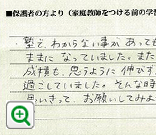 ■保護者の方より(家庭教師をつける前の学習
塾で、わからない事があっても
ままになっていました。また
成績も、思うように伸びず
過ごしていました。そんな時
思いきって、お願いしてみよ